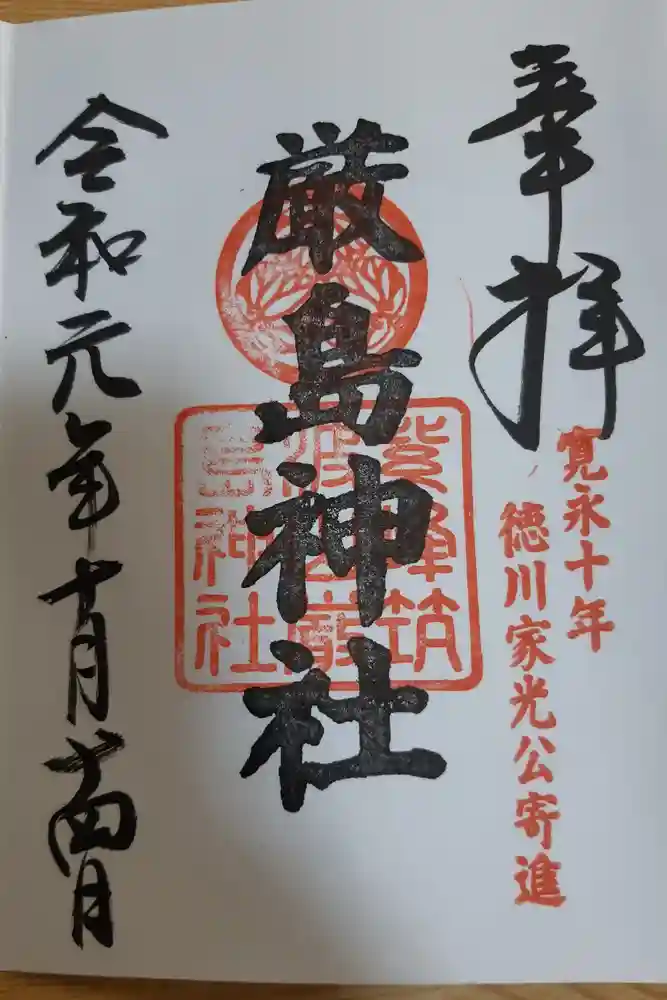 奉拝
寛永十年
徳川家光公寄進
厳島神社
紫峰筑
波山厳
島神社
令和元年十月十四日